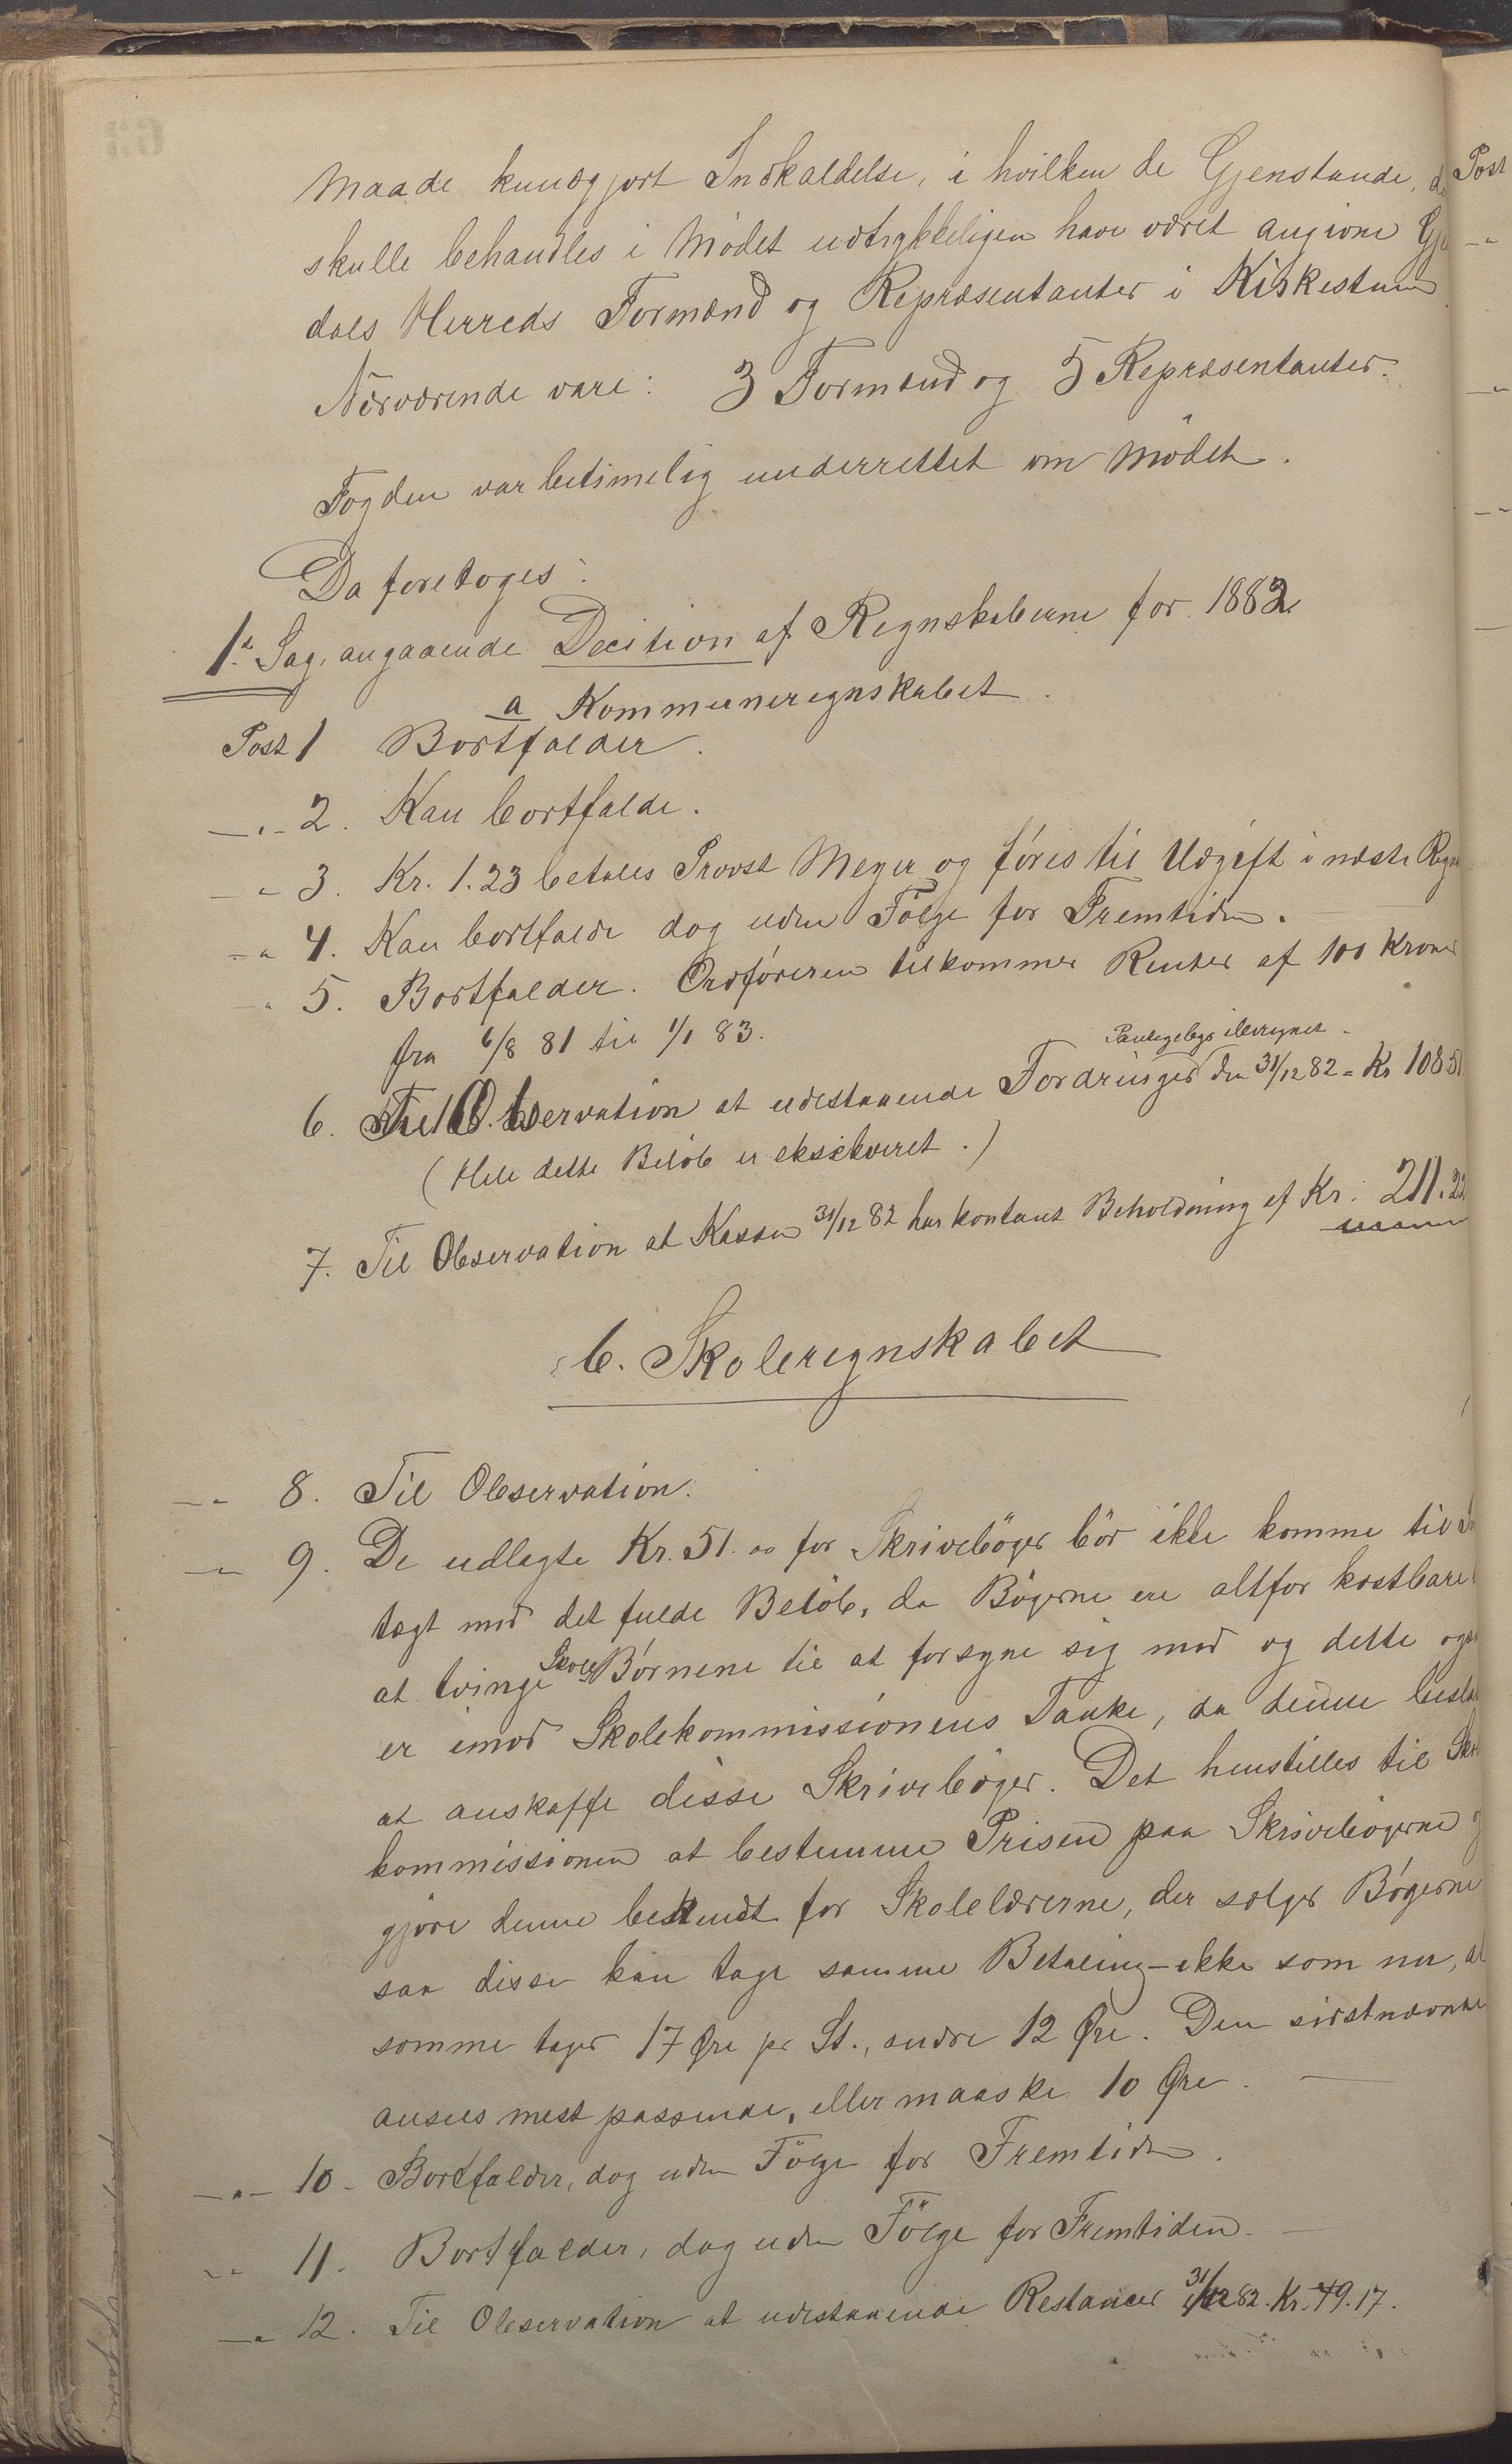 Maade kundgjort Indkaldelse, i hvilken de Gjenstande, d
skulle behandles i Mödet udtrykkeligen have været angivne Gje
dals Herreds Formænd og Repræsentanter i Kirkestuen
Nærværende vare: 3 Formænd og 5 Repræsentanter.
Fogden var betimelig underrettet om Mödet.
Da foretoges:
1ste Sag, angaaende Decition af Regnskaberne for 1882
a Kommuneregnskabet.
Post 1 Bortfalder.
—"— 2. Kan bortfalde.
—"— 3. Kr. 1.23 betales Provst Meyer og föres til Udgift i næste Regn
—"— 4. Kan bortfalde dog uden Fölge for Fremtiden. —
—"— 5. Bortfalder. Ordföreren tilkommer Renter af 100 Kroner
fra 6/8 81 til 1/1 83.
6. Til Observation at udestaaende Fordringer den 31/12 82 = Kr 1085
(Hele dette Belöb er eksekveret.)
7. Til Observation at Kassen 31/12 82 har kontant Beholdning af Kr. 211.22
b. Skoleregnskabet
—"— 8. Til Observation.
—"— 9. De udlagte Kr. 51.00 for Skriveböger bör ikke komme til In
tægt med det fulde Belöb, da Bögerne ere altfor kostbare
at tvinge Skole Börnene til at forsyne sig med og dette ogsaa
er imod Skolekommissionens Tanke, da denne beslu
at anskaffe disse Skriveböger. Det henstilles til Skole
kommissionen at bestemme Prisen paa Skrivebögerne og
gjöre denne bekendt for Skolelærerne, der sælger Bögerne
saa disse kan tage samme Betaling – ikke som nu, at
somme tager 17 Øre pr St., andre 12 Øre. Den sidstnævnte
ansees mest passende, eller maaske 10 Øre. —
—"— 10. Bortfalder, dog uden Fölge for Fremtiden.
—"— 11. Bortfalder, dog uden Fölge for Fremtiden. —
—"— 12. Til Observation at udestaaende Restancer 31/12 82. Kr. 49.17.
Post